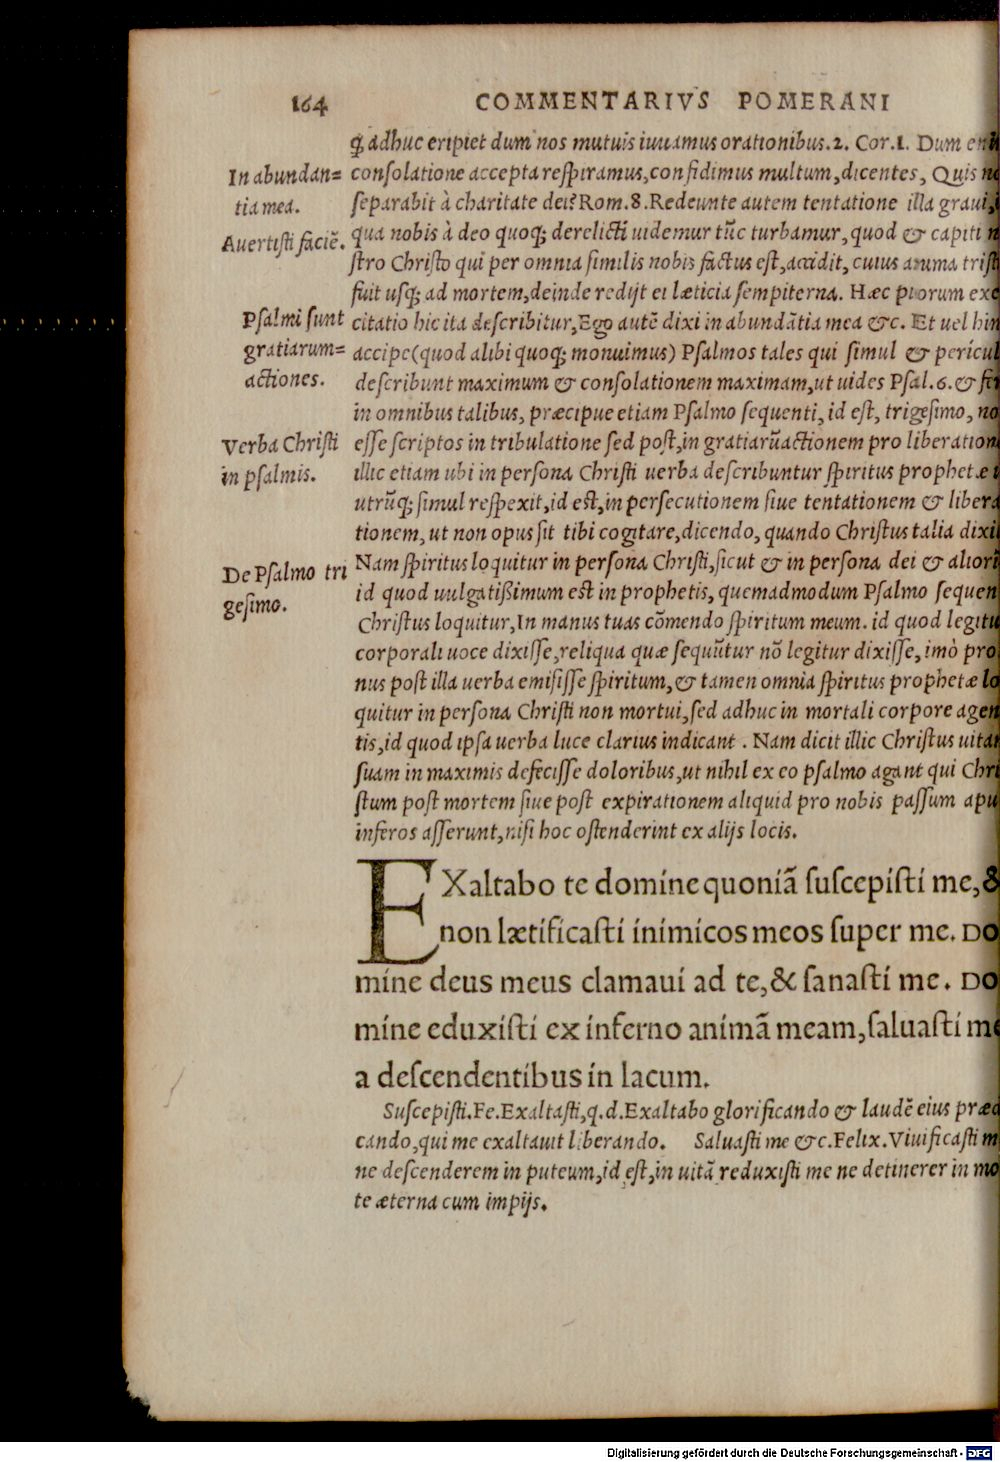 164 COMMENTARIVS POMERANI
ꝙ adhuc eripiet dum nos mutuis iuuamus orationibus. 2. Cor. 1. Dum
In abundan=
tia mea.
consolatione accepta respiramus, confidimus multum, dicentes, Quis
separabit à charitate dei? Rom. 8. Redeunte autem tentatione illa graui,
Auertisti faciẽ.
qua nobis à deo quoq; derelicti uidemur tũc turbamur, quod & capiti
stro Christo qui per omnia similis nobis factus est, accidit, cuius anima trist
fuit usq; ad mortem, deinde redijt ei læticia sempiterna. Hæc piorum exe
Psalmi sunt
gratiarum=
actiones.
citatio hic ita describitur, Ego autẽ dixi in abundãtia mea &c. Et uel hin
accipe (quod alibi quoq; monuimus) Psalmos tales qui simul & pericul
describunt maximum & consolationem maximam, ut uides Psal. 6. & fer
in omnibus talibus, præcipue etiam Psalmo sequenti, id est, trigesimo, no
Verba Christi
in psalmis.
esse scriptos in tribulatione sed post, in gratiarũactionem pro liberation
illic etiam ubi in persona Christi uerba describuntur spiritus prophetæ
utrũq; simul respexit, id est, in persecutionem siue tentationem & libera
tionem, ut non opus sit tibi cogitare, dicendo, quando Christus talia dixit
De Psalmo tri
gesimo.
Nam spiritus loquitur in persona Christi, sicut & in persona dei & aliorũ
id quod uulgatißimum est in prophetis, quemadmodum Psalmo sequen
Christus loquitur, In manus tuas cõmendo spiritum meum. id quod legitu
corporali uoce dixisse, reliqua quæ sequũtur nõ legitur dixisse, imò pro
nus post illa uerba emisisse spiritum, & tamen omnia spiritus prophetæ lo
quitur in persona Christi non mortui, sed adhuc in mortali corpore agen
tis, id quod ipsa uerba luce clarius indicant. Nam dicit illic Christus uitam
suam in maximis defecisse doloribus, ut nihil ex eo psalmo agant qui Chri
stum post mortem siue post expirationem aliquid pro nobis passum apu
inferos asserunt, nisi hoc ostenderint ex alijs locis.
EXaltabo te domine quoniã suscepisti me, &
non lætificasti inimicos meos super me. DO
mine deus meus clamaui ad te, & sanasti me. DO
mine eduxisti ex inferno animã meam, saluasti me
a descendentibus in lacum.
Suscepisti. Fe. Exaltasti, q. d. Exaltabo glorificando & laudẽ eius præd
cando, qui me exaltauit liberando. Saluasti me &c. Felix. Viuificasti m
ne descenderem in puteum, id est, in uitã reduxisti me ne detinerer in mo
te æterna cum impijs.
Digitalisierung gefördert durch die Deutsche Forschungsgemeinschaft - DFG